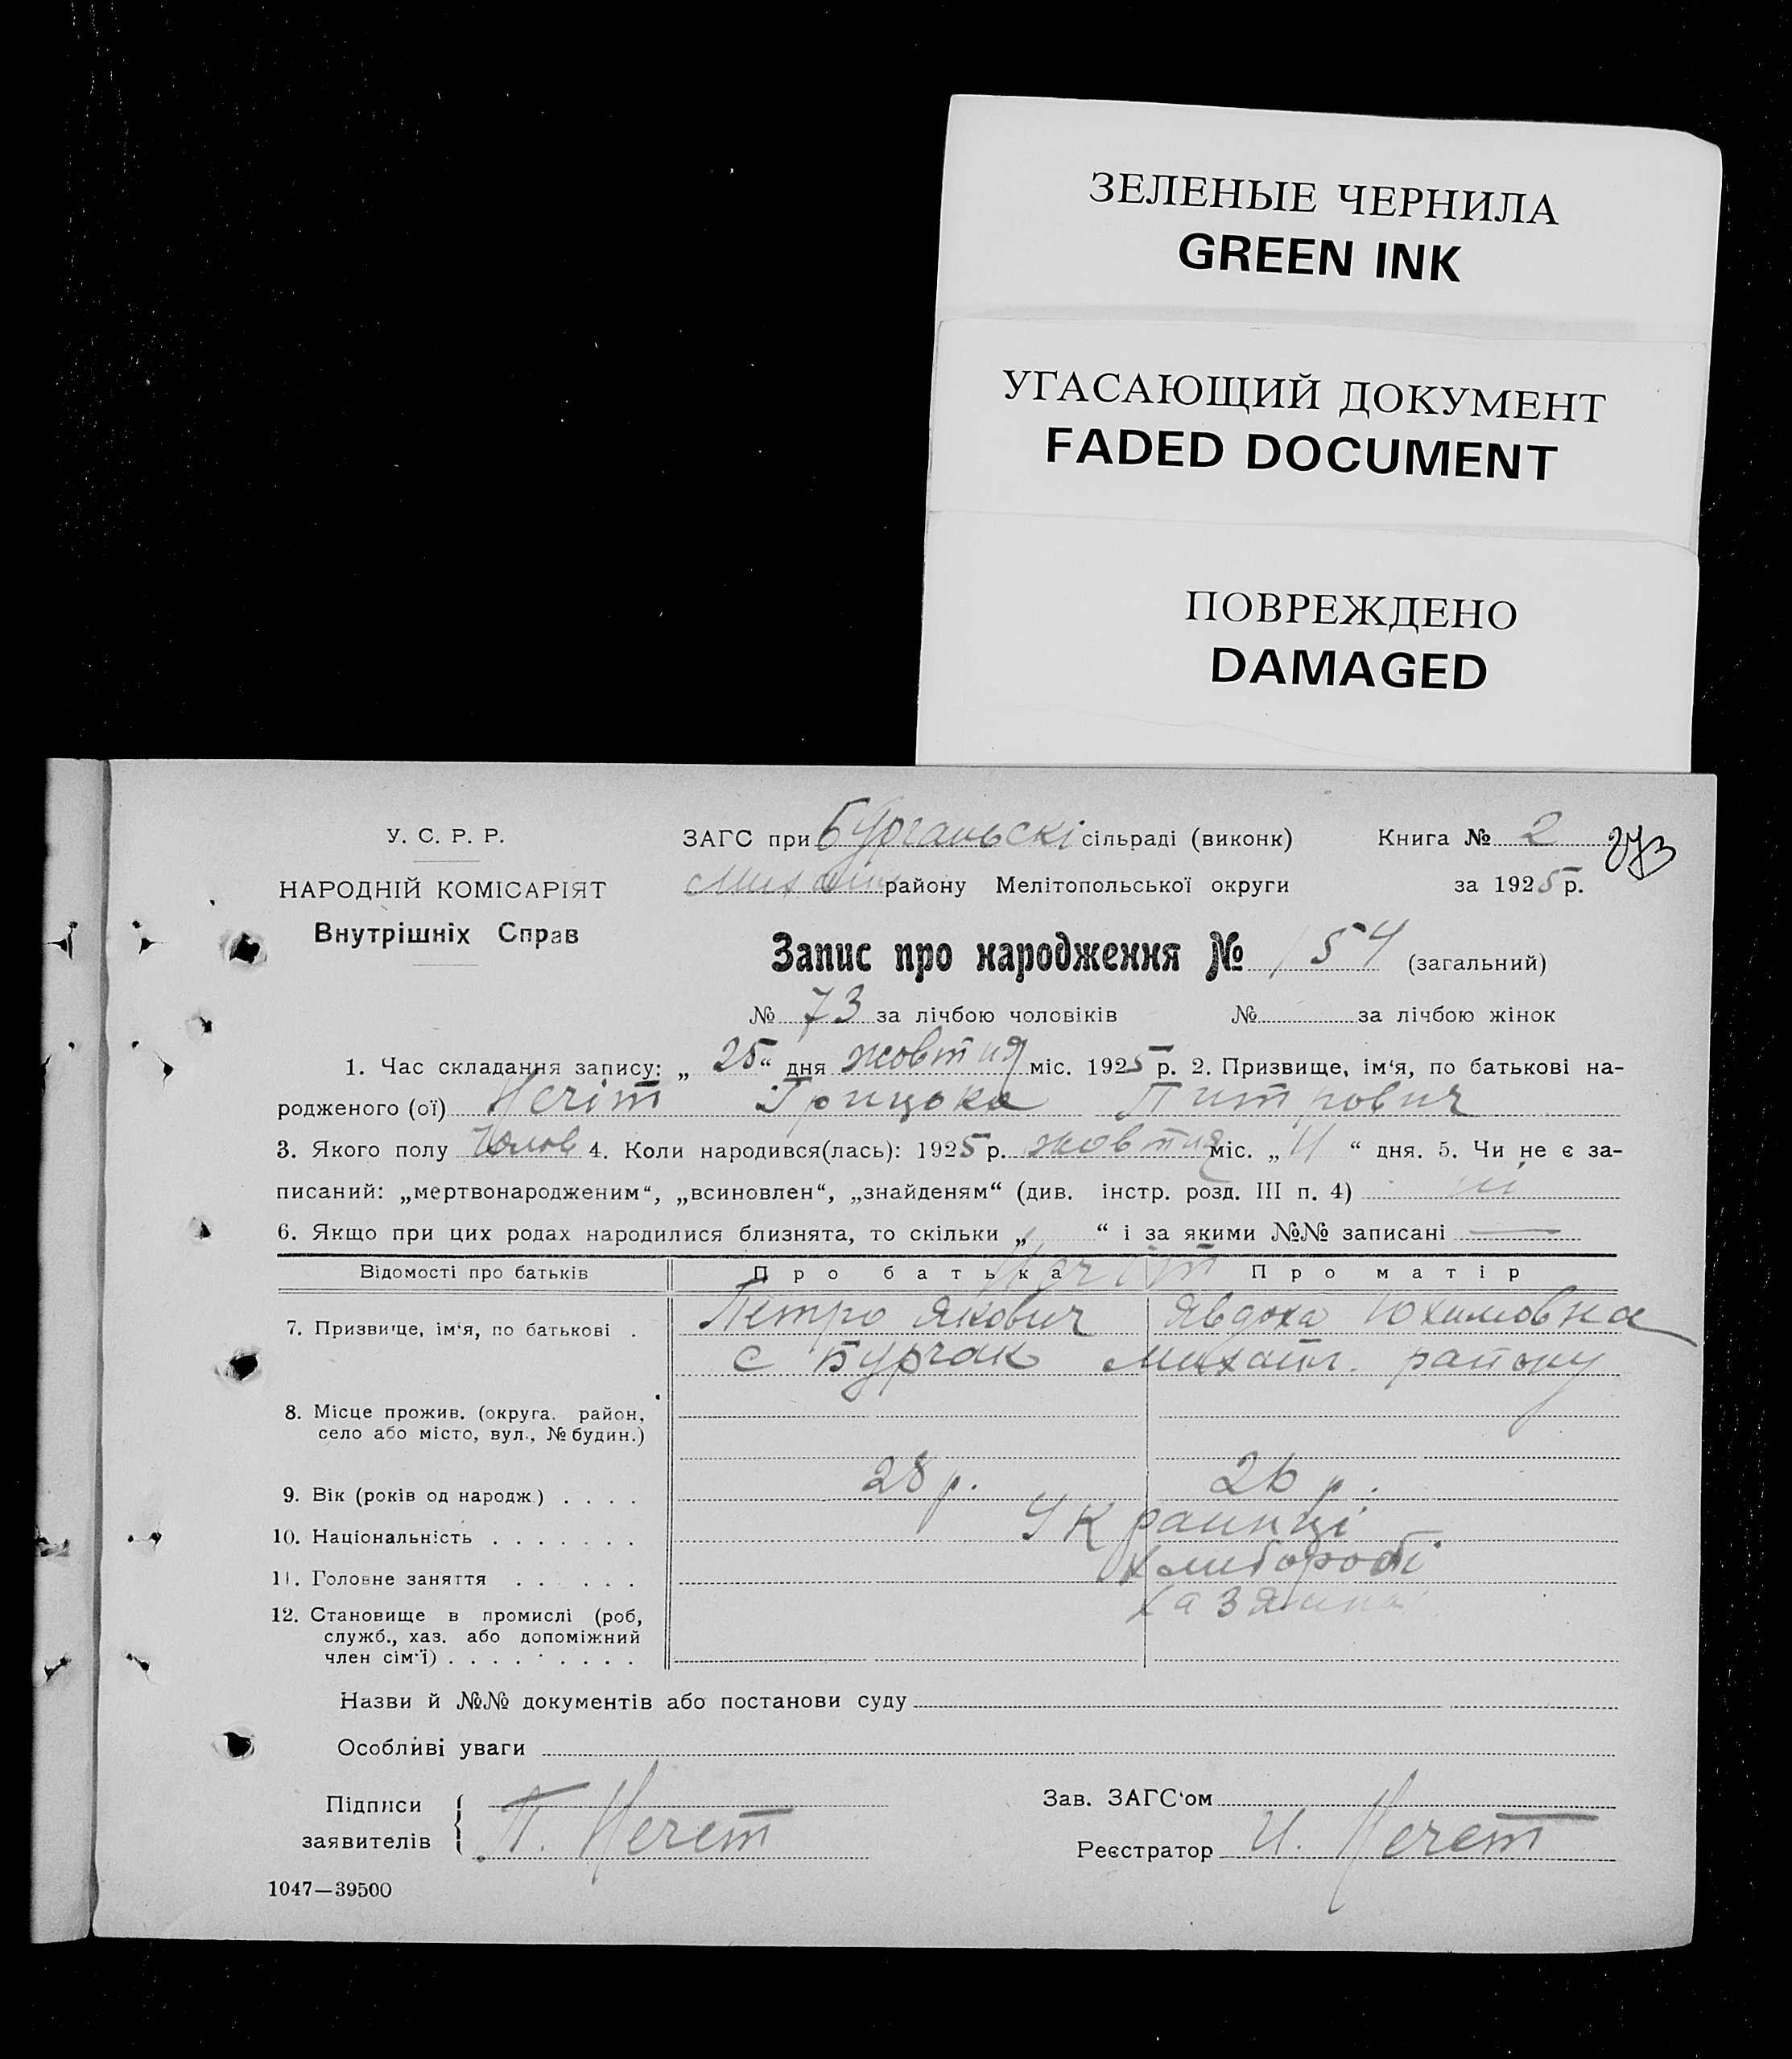 ЗЕЛЕНЫЕ ЧЕРНИЛА
GREEN INK
УГАСАЮЩИЙ ДОКУМЕНТ
FADED DOCUMENT
ПОВРЕЖДЕНО
DAMAGED
У. С. Р. Р.
НАРОДНІЙ КОМІСАРІЯТ
Внутрішніх Справ
ЗАГС при сільраді (виконк) Книга № 2 273
району Мелітопольської округи за 1925 р.
Запис про народження № 154 (загальний)
№ 73 за лічбою чоловіків № за лічбою жінок
1. Час складання запису: „ 25 “ дня жовтня міс. 1925 р. 2. Призвище, ім‘я, по батькові на-
родженого (ої) Нечіт Грицока Питрович
3. Якого полу Чолов 4. Коли народився(лась): 1925 р. жовтня міс. „ 11 “ дня. 5. Чи не є за-
писаний: „мертвонародженим“, „всиновлен“, „знайденям“ (див. інстр. розд. III п. 4) ні
6. Якщо при цих родах народилися близнята, то скільки „ “ і за якими №№ записані —
Відомості про батьків Про батька Про матір
Нечіт
7. Призвище, ім‘я, по батькові . Петро Якович Явдоха Юхимовна
с Бурчак Михайл. району
8. Місце прожив. (округа. район,
село або місто, вул., № будин.)
9. Вік (років од народж) . . . . 28 р. 26 р.
10. Національність . . . . . . . Украинці
11. Головне заняття . . . . . . хлибороби
12. Становище в промислі (роб,
служб., хаз. або допоміжний
член сім‘ї) . . . . . . . . .
Назви й №№ документів або постанови суду
Особливі уваги
Підписи
заявителів П. Нечет
Зав. ЗАГС‘ом
Реєстратор И. Нечет
1047—39500